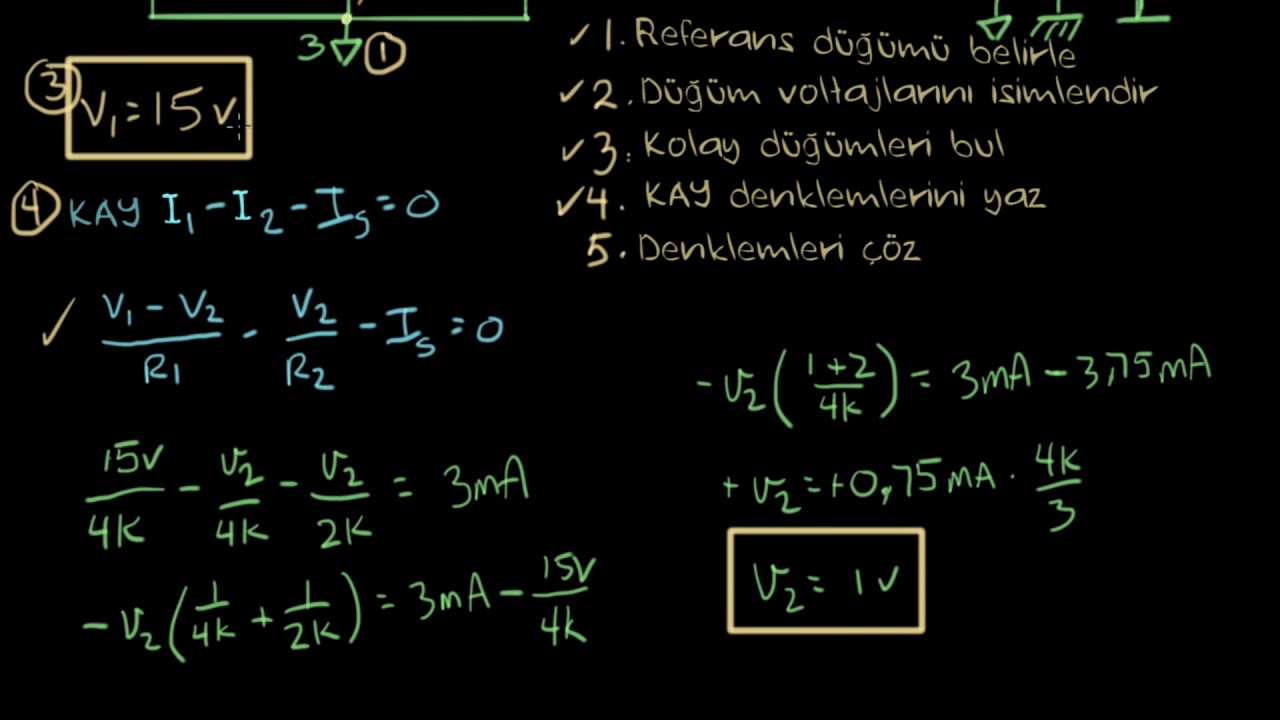 3 ①
③ V₁ = 15 V
④ KAY I₁ - I₂ - Iₛ = 0
✓ (V₁ - V₂)/R₁ - V₂/R₂ - Iₛ = 0
15V/4K - V₂/4K - V₂/2K = 3mA
-V₂(1/4K + 1/2K) = 3mA - 15V/4K
✓ 1. Referans düğümü belirle
✓ 2. Düğüm voltajlarını isimlendir
✓ 3. Kolay düğümleri bul
✓ 4. KAY denklemlerini yaz
5. Denklemleri çöz
-V₂((1+2)/4K) = 3mA - 3,75mA
+V₂ = +0,75mA · 4K/3
V₂ = 1V